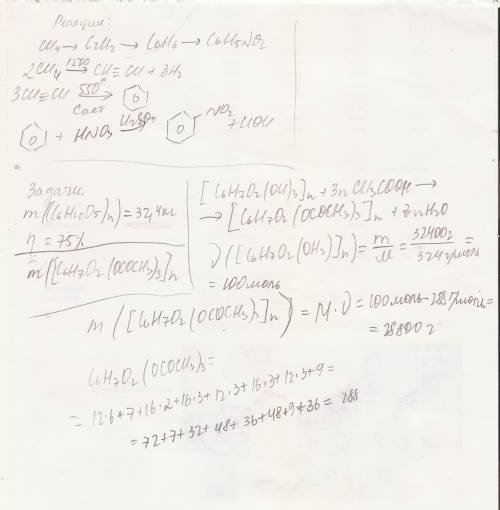 Реакции:
CH4 → C2H2 → C6H6 → C6H5NO2
2CH4 1500 → CH ≡ CH + 3H2
3CH≡CH 550° → Cакт
+ HNO3 H2SO4 → NO2
Задачи
m((C6H10O5)n) = 32,4кг
η = 75%
m([C6H7O2(OCOCH3)3]n
[C6H7O2(OH)3]n + 3nCH3COOH →
→ [C6H7O2(OCOCH3)3]n + 3nH2O
ν([C6H7O2(OH)3]n) = m/M = 32400г/324г/моль =
= 100моль
m([C6H7O2(OCOCH3)3]n) = M·ν = 100моль-288г/моль=
= 28800г
C6H7O2(OCOCH3)3=
= 12·6+7+16·2+16·3+12·3+16·3+12·3+9=
= 72+7+32+48+36+48+9+36= 288